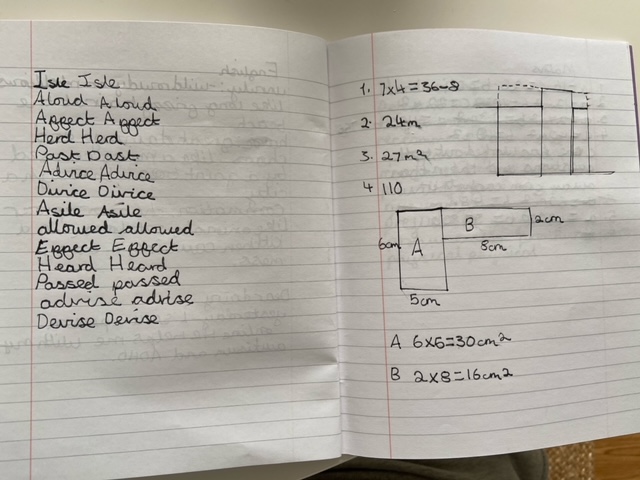 Isle Isle
Aloud Aloud
Affect Affect
Herd Herd
Past Past
Advice Advice
Divice Divice
Asile Asile
allowed allowed
Effect Effect
Heard Heard
Passed passed
advise advise
Devise Devise
1. 7x4=36-8
2. 24m
3. 27m²
4 110
B
2cm
6cm
A
8cm
5cm
A 6x6=30cm²
B 2x8=16cm²